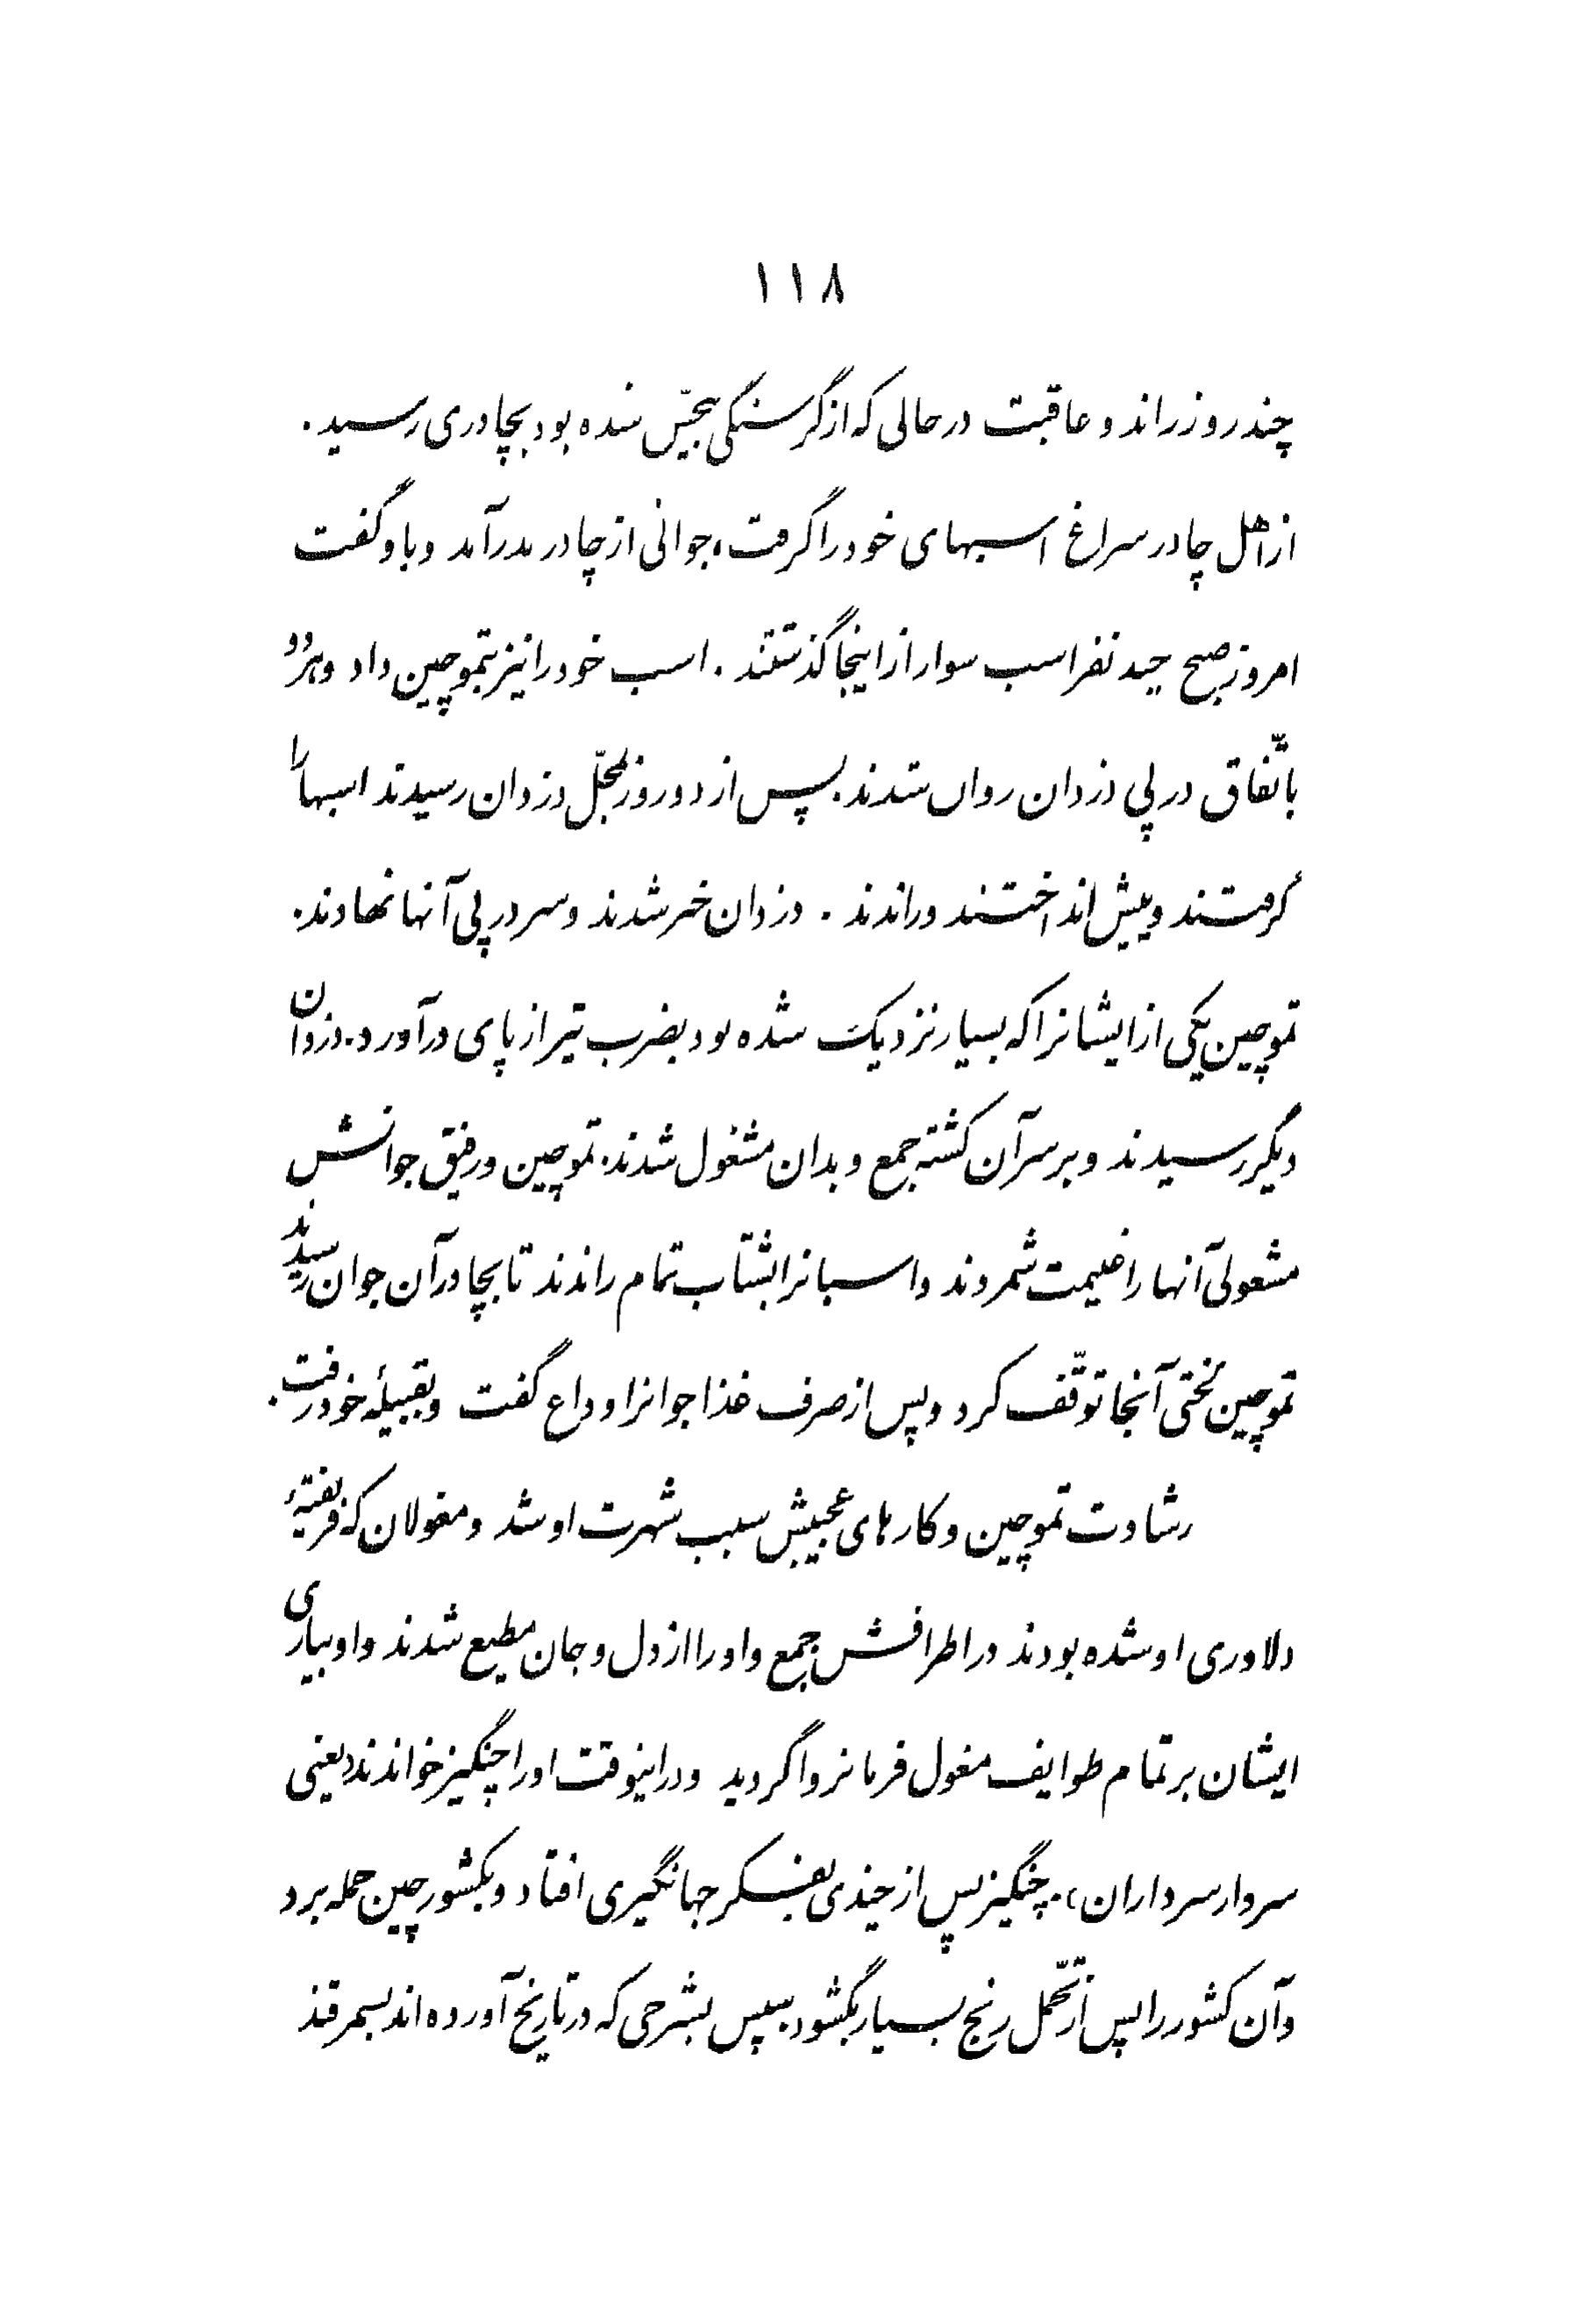 ۱۱۸
چند روز راند و عاقبت در حالی که از گرسنگی بیحسّ شده بود بچادری رسید.
از اهل چادر سراغ اسبهای خود را گرفت، جوانی از چادر بدر آمد و باو گفت
امروز صبح چند نفر اسب سوار از اینجا گذشتند. اسب خود را نیز بتموچین داد و هر دو
باتّفاق در پی دزدان روان شدند. پس از دو روز بمحلّ دزدان رسیدند اسبها را
گرفتند و پیش انداختند و راندند. دزدان خبر شدند و سر در پی آنها نهادند.
تموچین یکی از ایشانرا که بسیار نزدیک شده بود بضرب تیر از پای در آورد. دزدان
دیگر رسیدند و بر سر آن کشته جمع و بدان مشغول شدند. تموچین و رفیق جوانش
مشغولی آنها را غنیمت شمردند و اسبانرا بشتاب تمام راندند تا بچادر آن جوان رسیدند
تموچین لختی آنجا توقّف کرد و پس از صرف غذا جوانرا وداع گفت و بقبیلهٔ خود رفت.
رشادت تموچین و کارهای عجیبش سبب شهرت او شد و مغولان که فریفتهٔ
دلاوری او شده بودند در اطرافش جمع و او را از دل و جان مطیع شدند و او بیاری
ایشان بر تمام طوایف مغول فرمانروا گردید و در اینوقت او را چنگیز خواندند (یعنی
سردار سرداران). چنگیز پس از چندی بفکر جهانگیری افتاد و بکشور چین حمله برد
و آن کشور را پس از تحمّل رنج بسیار بگشود. سپس بشرحی که در تاریخ آورده اند بسمرقند